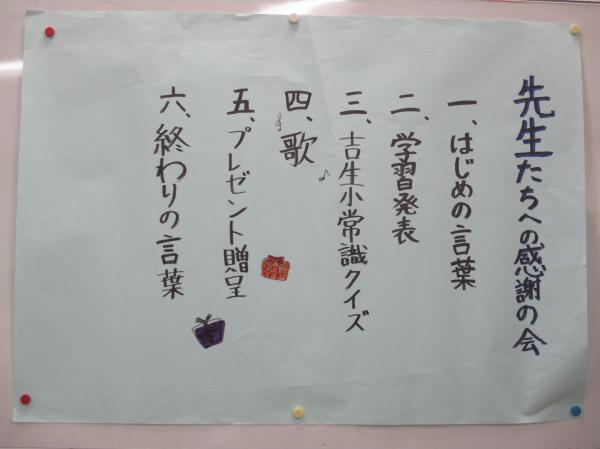 先生たちへの感謝の会
一、はじめの言葉
二、学習発表
三、吉生小常識クイズ
四、歌
五、プレゼント贈呈
六、終わりの言葉